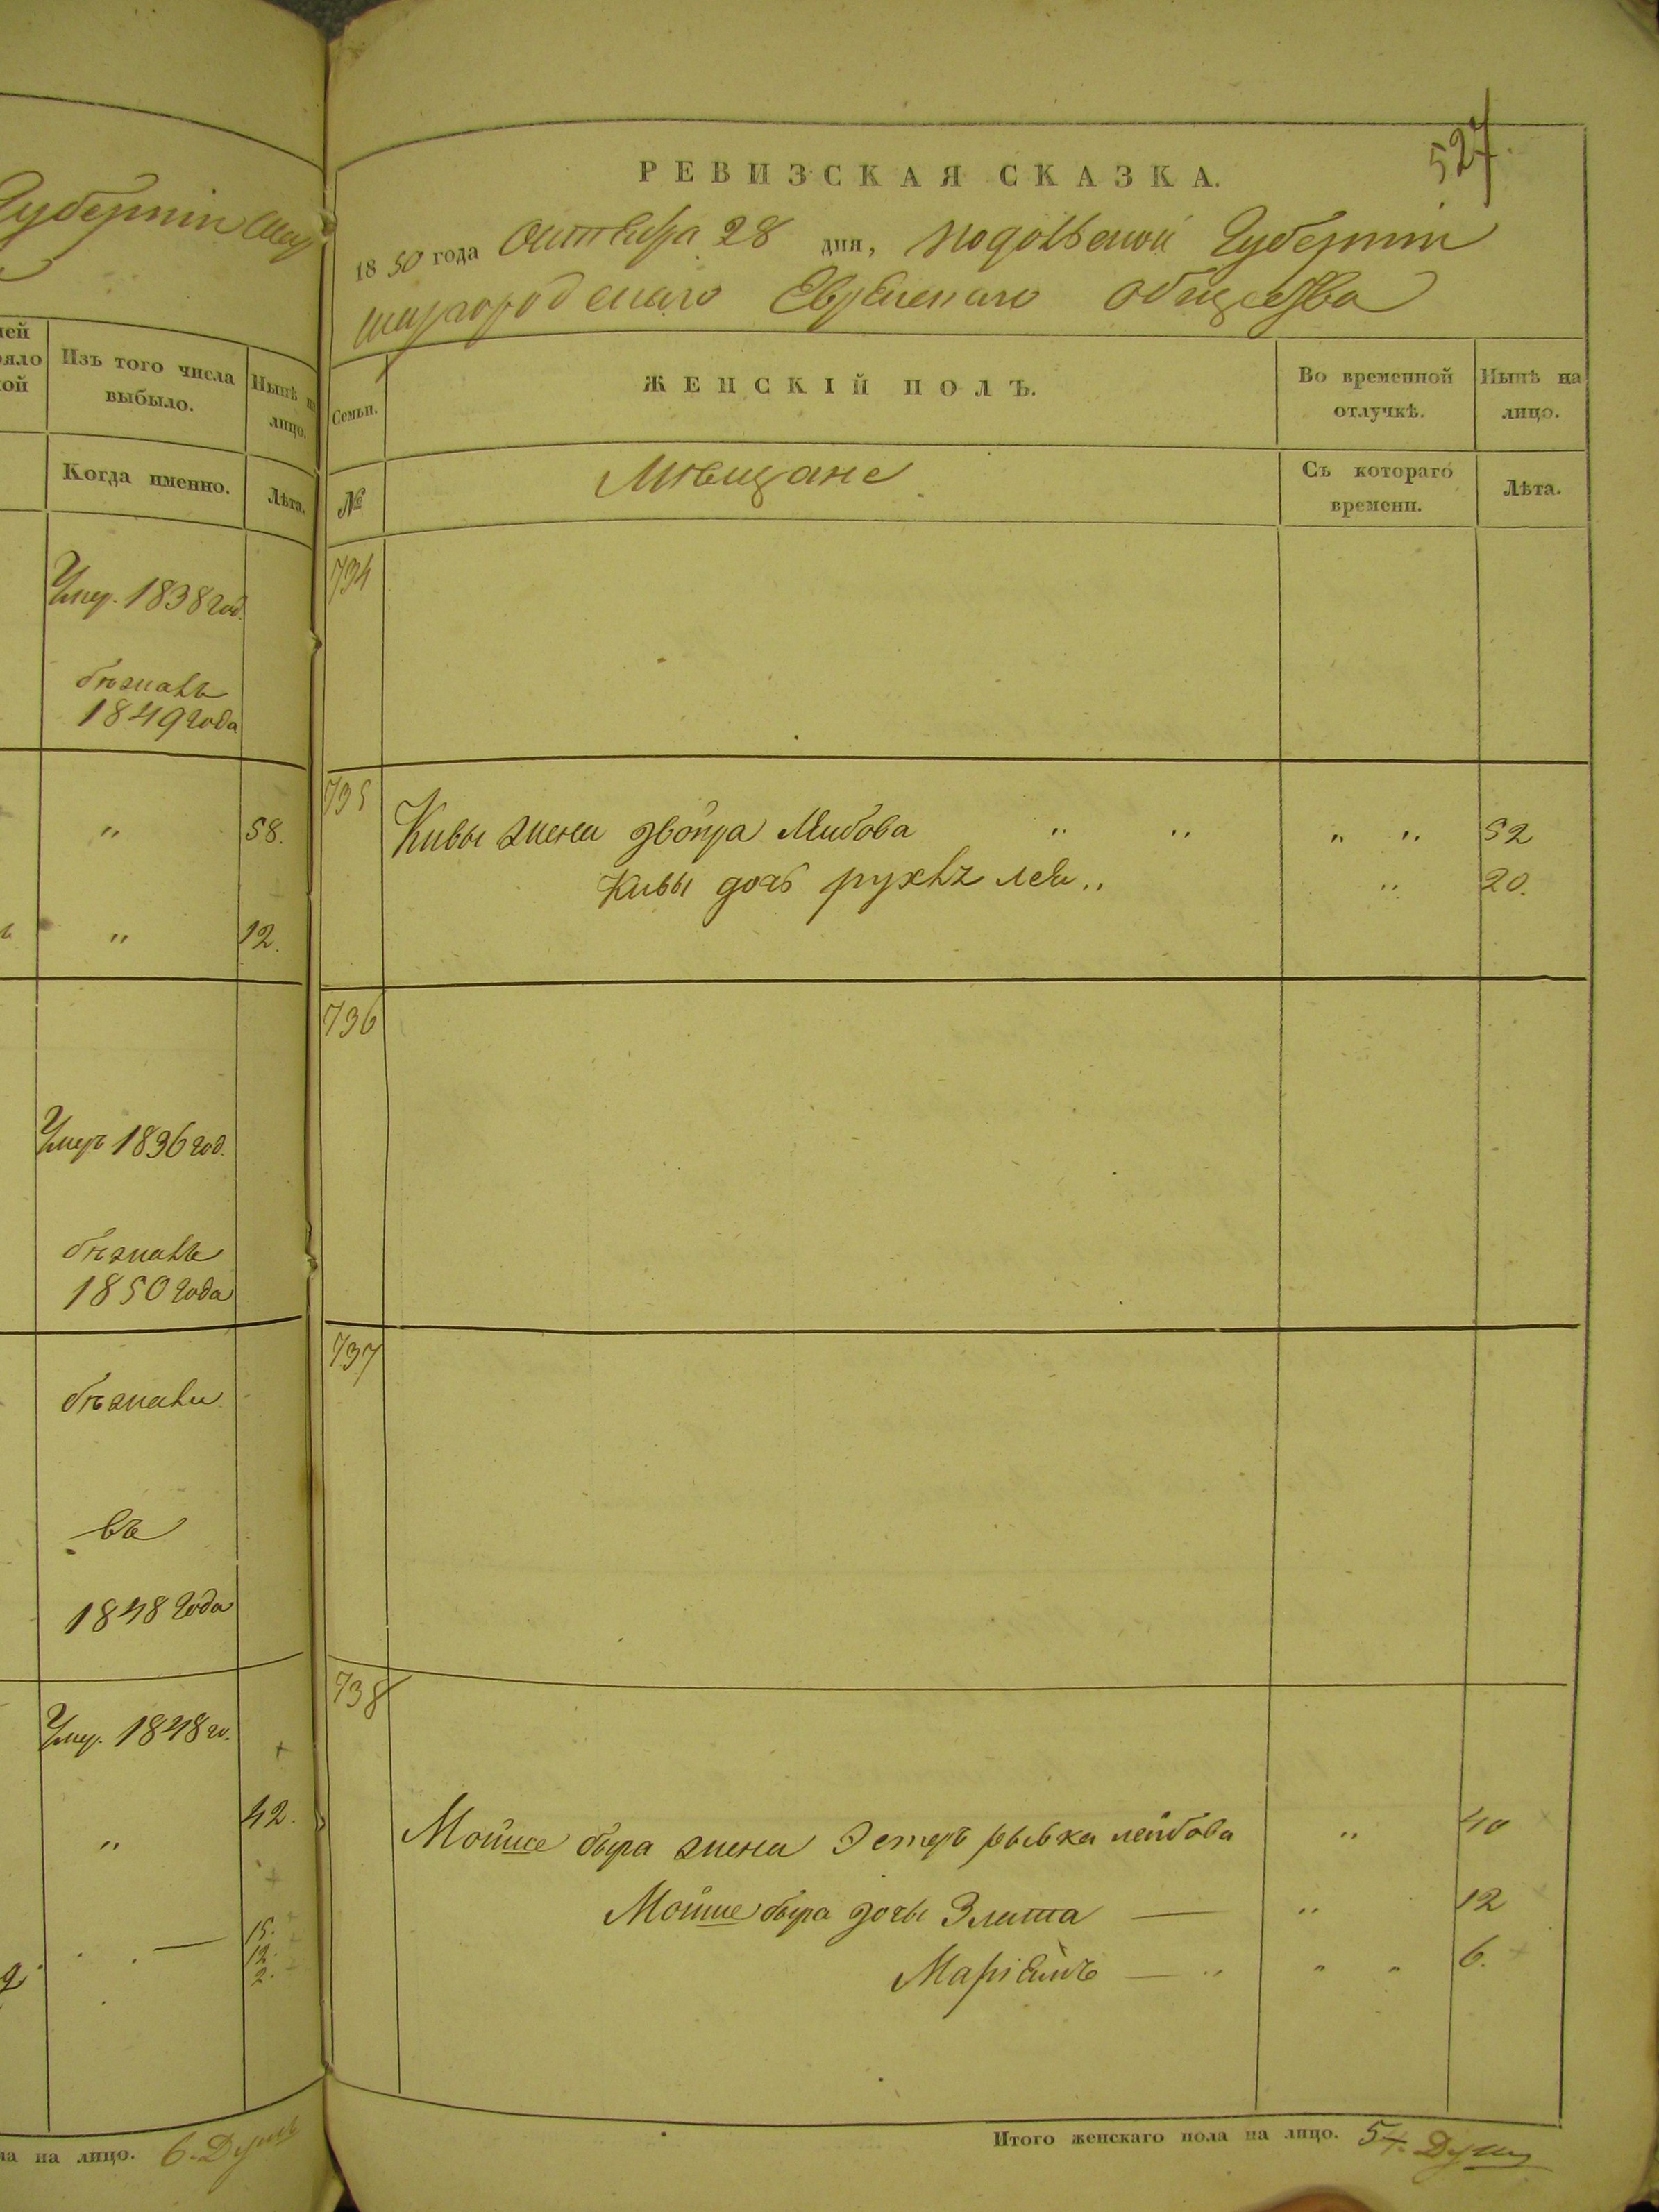 Губерніи
Изъ того числа
выбыло.
Нынѣ на
лицо.
Когда именно.
Лѣта.
Умер. 1838 год.
бѣжалъ
1849 года
" 58.
" 12.
Умеръ 1836 год.
бѣжалъ
1850 года
бѣжали
въ
1848 года
Умер. 1848 го.
" 42.
15.
12.
2.
на лицо. 6. Душъ
527.
РЕВИЗСКАЯ СКАЗКА.
1850 года Октября 28 дня, Подольской Губерніи
шаргородскаго Еврейскаго общества
Семьи.
ЖЕНСКІЙ ПОЛЪ.
Во временной
отлучкѣ.
Нынѣ на
лицо.
№
Мѣщане
Съ котораго
времени.
Лѣта.
734
735
Кивы жена двойра Лейбова " " " " 52
Кивы дочь рухль лея " " 20.
736
737
738
Мойше бера жена Эстеръ рывка лейбова " 40
Мойше бера дочь Злата — " 12
Маріемъ — " " " 6.
Итого женскаго пола на лицо. 5 Душ